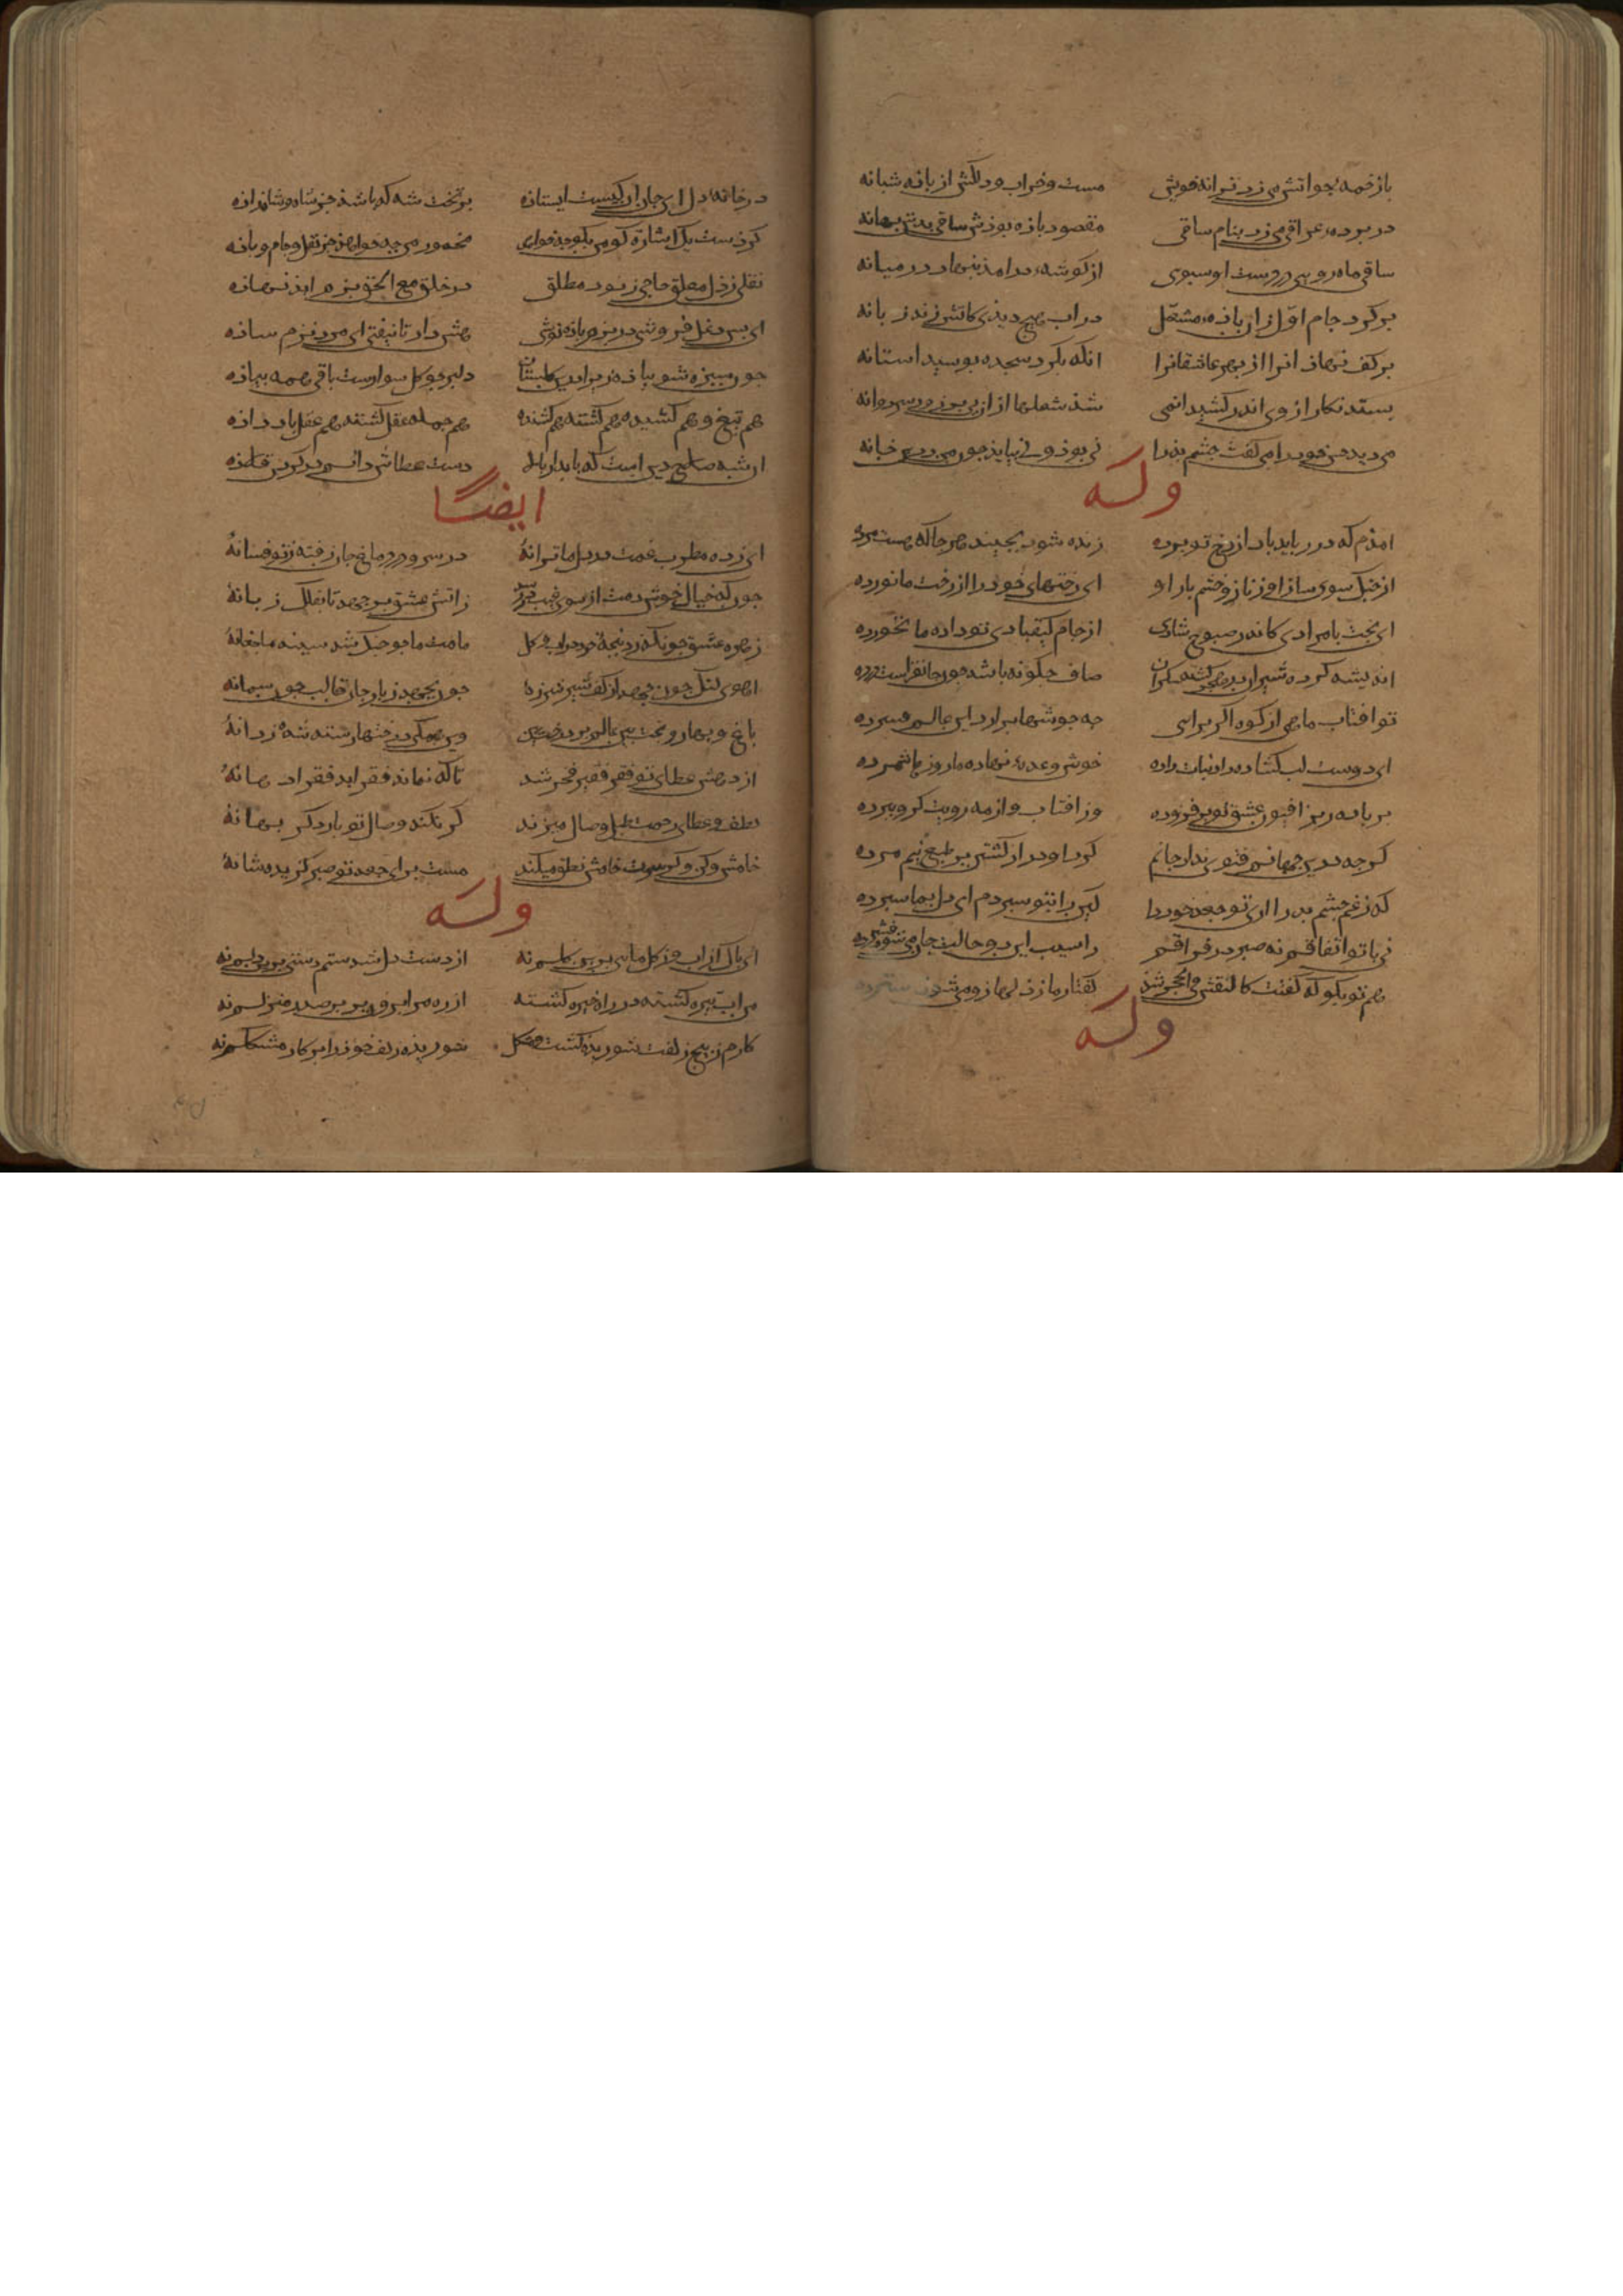 بازخمه جو اتش می زد ترانه خوش مست و خراب و دلکش از باذه شبانه
در برده عراقی می زد بنام ساقی مقصود باذه بوذش ساقی بدش بهانه
ساقی ماه رویی در دست او سبوی از کوشه در امذ بنهاد در میانه
بر کرد جام اول زان باذه مشعل در اب هیچ دیذی کاتش زند زبانه
بر کف نهاذ انرا از بهر عاشقانرا انکه بکرد سجده بوسید استانه
بستد نکار از وی اندر کشید انمی شذ شعلها از ان می بر روی و سر دوانه
می دید حسن خود را می کفت جشم بذ را نی بوذ و نی بیایذ جون من درین زمانه
وله
اندم که در رباید باد از رخ تو برده زنده شود بجنبد هر جا که هست مرده
از جنک سوی ساز ا وز ناز و خشم باز او ای رختهای خود را از رخت ما نورده
ای بخت بامرادی کاندر صبوح شادی از جام کیقبادی تو داده ما بخورده
اندیشه کرده سیران در هجر کشته سکران صاف جکونه باشد جون جانفزاست درده
تو افتاب مایی از کوه اکر برایی جه جوشها برارد این عالم فسرده
ای دوست لب کشاده داد نبات داده خوش وعده نهاده ما روزها شمرده
بر باده ریز افیون عشق تو بر فزوده وز افتاب و از مه رویت کرو ببرده
کرجه درین جهانم فتوی نداد جانم کرد او دراز کشتی بر طبع نیم مرده
که زغم جشم بد را ای تو جعد خود را کین را بتو سبردم ای دل بما سبرده
نی با تو اتفاقم نه صبر در فراقم ز اسیب این دو حالت جان می شود فشرده
هم تو بکو که کفتت کالنقش فی الحجر شذ کفتار ما ز دلها زو می شود سترده
وله
در خانه دل ای جان ان کیست ایستاذه بر تخت شه که باشذ جز شاه و شاهزاذه
کرذ ست یک اشارت کو می بکو جه خواهی مخمور می جه خواهذ جز نقل و جام و باذه
نقلی ز دل معلق جامی ز نور مطلق در خلق مع الحق بزم ابذ نهاذه
ای بس دغل فروشی در بزم باذه نوشی هش دار تا نیفتی ای مرد نرم ساذه
جون سبزه شو بیاذه زیرا درین کلستان دلبر جو کل سوارست باقی همه بیاذه
هم تیغ و هم کشیده هم کشته هم کشنده هم جمله عقل کشته هم عقل باذ داذه
ان شه صلاح دین است که بایدار بادا دست عطاش دایم در کردن قلاذه
ایضا
ای زده مطرب غمت در دل ما ترانه در سر و در دماغ جان رفته ز تو فسانه
جونکه خیال خوش دمت از سوی غیب دمید زاتش عشق بر جهد تا بفلک زبانه
زهره عشق جون بزد بنجه خود در اب و کل قامت ما جو جنک شد سینه ما جغانه
اهوی لنک جون جهد از کف شیر شرزه جون بجهد زباد جان قالب جون سمانه
باغ و بهار و بخت بین عالم بر درخت بین وین همکی درختها رسته شده ز دانه
از دهش عطای تو فقر فقیر فخر شد تا که نماند فقر اید فقر اد بهانه
لطف و عطا و رحمتت طبل وصال میزند کر نکند وصال تو بار دکر بهانه
خامش و کن و کر سرت خامش نطق میکند مست برای جعد تو صبر کزید و شانه
وله
ای باک از اب و از کل مایی برین کلم نه از دست دل شد ستم دستی برین دلم نه
من اب تیره کشته در راه خیره کشته از ره مرا برون بر در صدر منزلم نه
کارم ز بیج زلفت شوریذه کشت و مشکل شوریده زلف خوذ را بر کار مشکلم نه